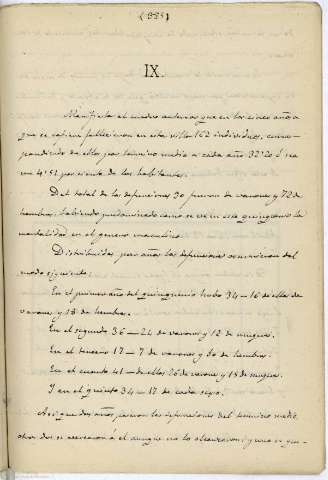 (551)
IX.
Manifiesta el cuadro anterior que en los cinco años a
que se refiere fallecieron en esta villa 162 individuos, corres-
pondiendo de ellos por término medio a cada año 32'20 ó sea
un 4'52 por ciento de los habitantes.
Del total de las defunciones 90 fueron de varones y 72 de
hembras, habiendo predominado como se ve en este quinquenio la
mortalidad en el genero masculino.
Distribuidas por años las defunciones ocurrieron del
modo siguiente
En el primer año del quinquenio hubo 34 - 16 de ellas de
varones y 18 de hembras.
En el segundo 36 - 24 de varones y 12 de mugeres.
En el tercero 17 - 7 de varones y 10 de hembras.
En el cuarto 41 - de ellas 26 de varones y 15 de mugeres.
Y en el quinto 34 - 17 de cada sexo.
Asi que dos años pasaron las defunciones del termino medio,
otros dos se acercaron á el aunque no lo alcanzaron y uno se que-